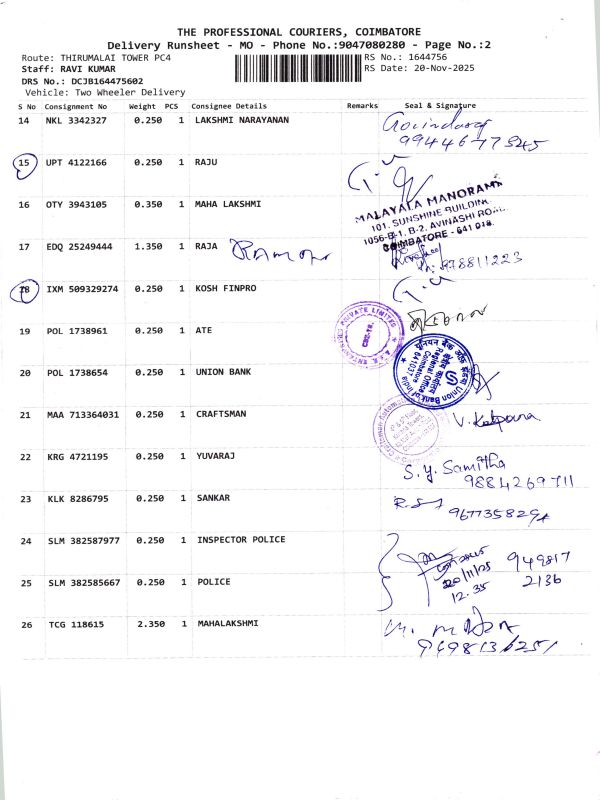 THE PROFESSIONAL COURIERS, COIMBATORE
Delivery Runsheet - MO - Phone No.:9047080280 - Page No.:2
Route: THIRUMALAI TOWER PC4 RS No.: 1644756
Staff: RAVI KUMAR RS Date: 20-Nov-2025
DRS No.: DCJB164475602
Vehicle: Two Wheeler Delivery
S No Consignment No Weight PCS Consignee Details Remarks Seal & Signature
14 NKL 3342327 0.250 1 LAKSHMI NARAYANAN
15 UPT 4122166 0.250 1 RAJU
16 OTY 3943105 0.350 1 MAHA LAKSHMI
MALAYALA MANORAMA
101, SUNSHINE BUILDING
1056-B-1, B-2, AVINASHI ROAD
COIMBATORE - 641 018.
17 EDQ 25249444 1.350 1 RAJA
18 IXM 509329274 0.250 1 KOSH FINPRO
19 POL 1738961 0.250 1 ATE
20 POL 1738654 0.250 1 UNION BANK
Union Bank of India
Regional Office
Coimbatore
641037
21 MAA 713364031 0.250 1 CRAFTSMAN
V. Kalpana
22 KRG 4721195 0.250 1 YUVARAJ
S. y. Samitha
9884269711
23 KLK 8286795 0.250 1 SANKAR
24 SLM 382587977 0.250 1 INSPECTOR POLICE
949817
20/11/25
2136
12.35
25 SLM 382585667 0.250 1 POLICE
26 TCG 118615 2.350 1 MAHALAKSHMI